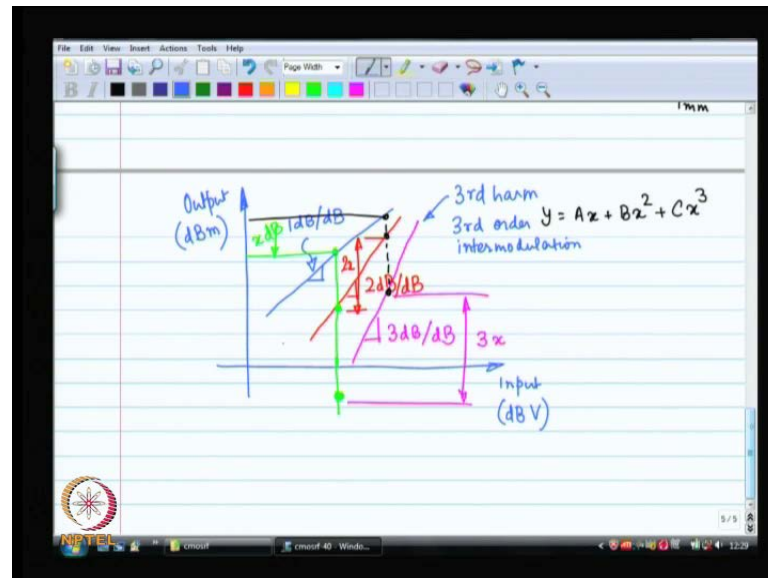 File Edit View Insert Actions Tools Help
Page Width
B I
1mm
Output
(dBm)
x dB
1dB/dB
3rd harm
3rd order
intermodulation
y = Ax + Bx² + Cx³
2x
2dB/dB
3dB/dB
3x
Input
(dBV)
5/5
NPTEL
cmosrf
cmosrf-40 - Windo...
12:29